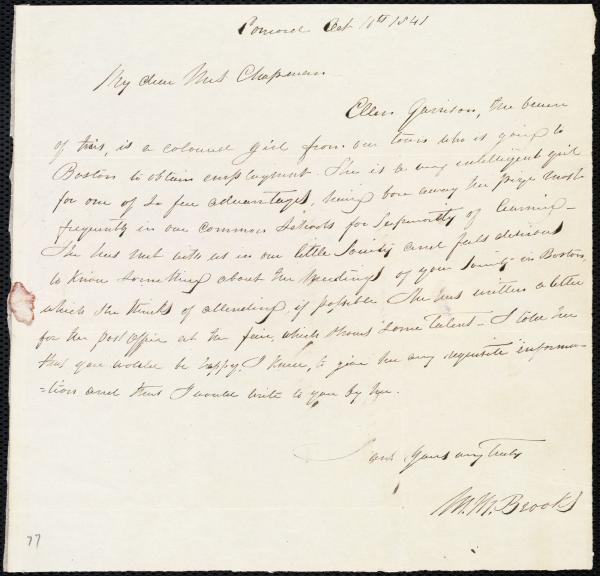 Concord Oct 11th 1841
My dear Mrs Chapman
Ellen Garrison, the bearer
of this, is a coloured girl from our town who is going to
Boston to obtain employment. She is a very intelligent girl
for one of so few advantages, having bore away the prize most
frequently in our common schools for superiority of learning -
She has met with us in our little Society and feels desirous
to know something about the meetings of your Society in Boston,
which she thinks of attending, if possible She has written a letter
for the post office at the fair, which shows some talent - I told her
that you would be happy, I knew, to give her any requisite informa-
=tion and that I would write to you by her.
I am yours very truly
M. M. Brooks
77